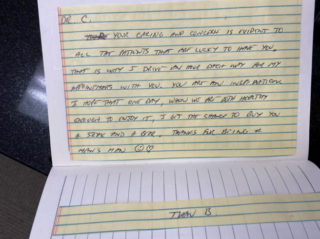 DR. C.
YOUR CARING AND CONCERN IS EVIDENT TO
ALL THE PATIENTS THAT ARE LUCKY TO HAVE YOU
THAT IS WHY I DRIVE AN HOUR EACH WAY FOR MY
APPOINTMENTS WITH YOU. YOU ARE AN INSPIRATION.
I HOPE THAT ONE DAY, WHEN WE ARE BOTH HEALTHY
ENOUGH TO ENJOY IT, I GET THE CHANCE TO BUY YOU
A STEAK AND A BEER. THANKS FOR BEING A
MAN'S MAN